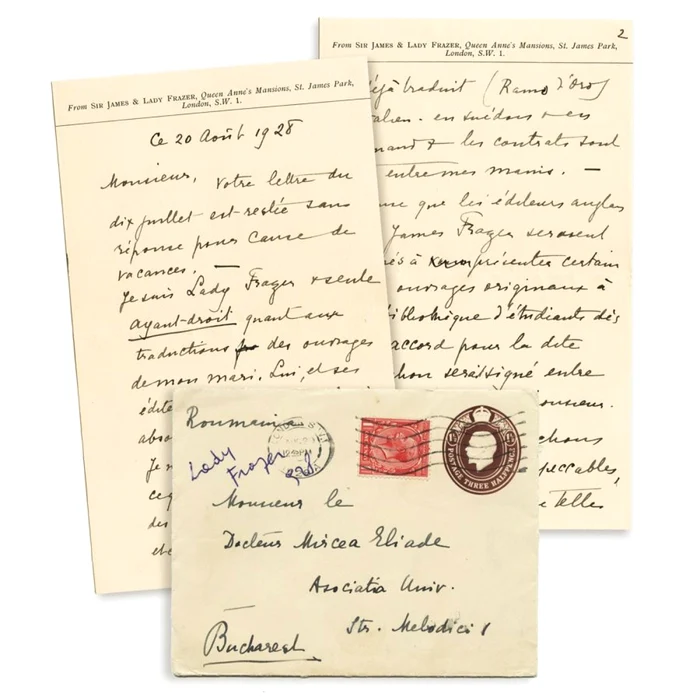 From Sir James & Lady Frazer, Queen Anne's Mansions, St. James Park,
London, S.W. 1.
Ce 20 Août 1928
Monsieur, Votre lettre du
dix juillet est restée sans
réponse pour cause de
vacances. —
Je suis Lady Frazer & seule
ayant-droit quant aux
traductions des ouvrages
de mon mari. Lui, et ses
édite
abso
Je
des
2
From Sir James & Lady Frazer, Queen Anne's Mansions, St. James Park,
London, S.W. 1.
déjà traduit (Ramo d'Oro)
alien. en suédois & en
mand & les contrats sont
entre mes mains. —
que les éditeurs anglais
James Frazer seraient
présenter certains
ouvrages originaux à
bibliothèque d'étudiants dès
accord pour la dite
serait signé entre
onsieur.
peccables,
telles
Roumania
Lady
Frazer
928
POSTAGE THREE HALFPENCE
Monsieur le
Docteur Mircea Eliade
Asociatia Univ.
Str. Melodiei 1
Bucharest